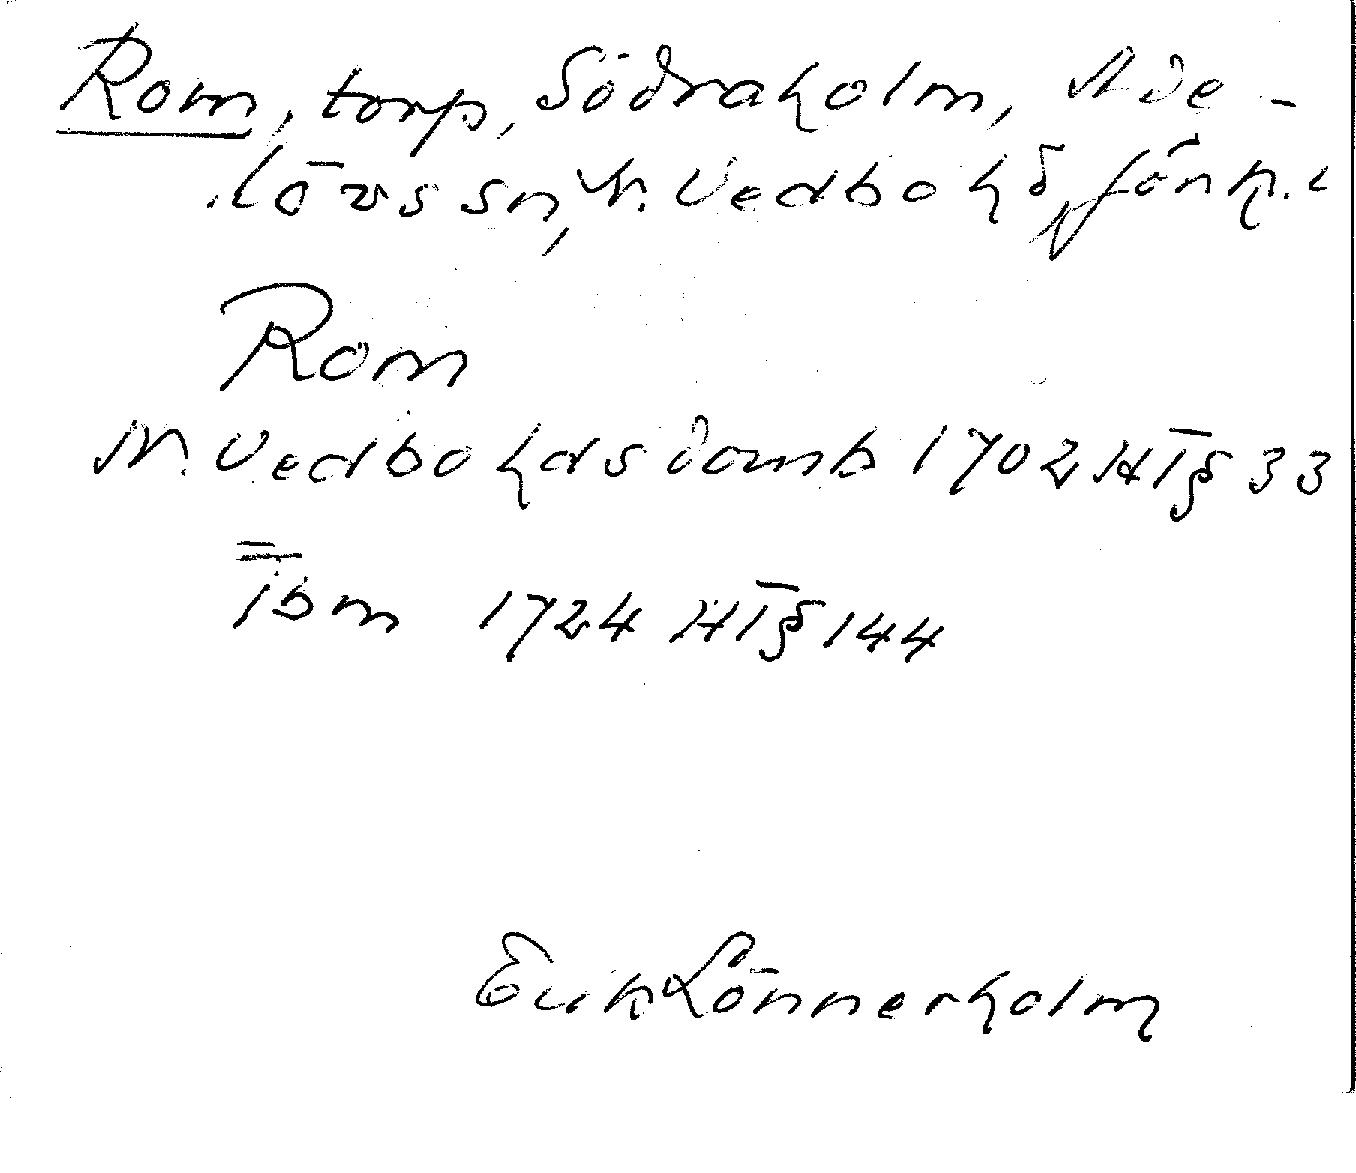 Rom, torp, Södraholm, Ade-
lövs sn, N. Vedbo hd, Jönk. l
Rom
N. Vedbo hds domb 1702 HT § 33
Ibm 1724 HT § 144
Erik Lönnerholm